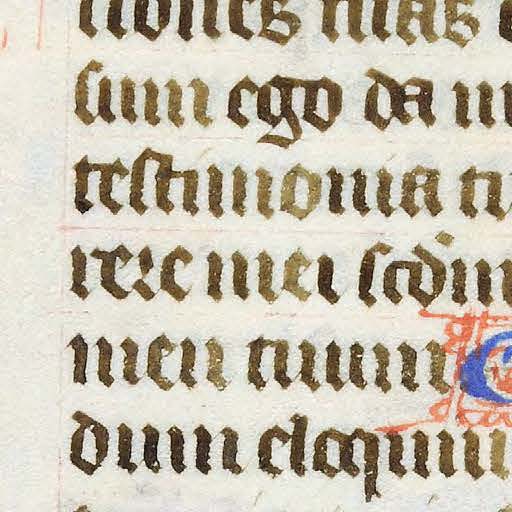 tiones tuas
sum ego da
testimonia tu
rere mei scdm
men tuum
dum eloquiu